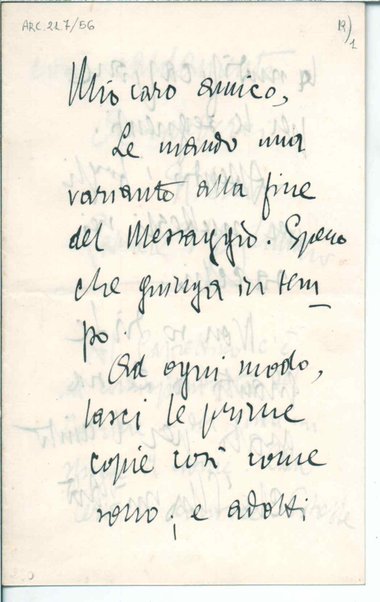 ARC. 22.7/56
Mio caro amico,
Le mando una
variante alla fine
del Messaggio. Spero
che giunga in tem_
po.
Ad ogni modo,
lasci le prime
copie così come
sono; e adotti